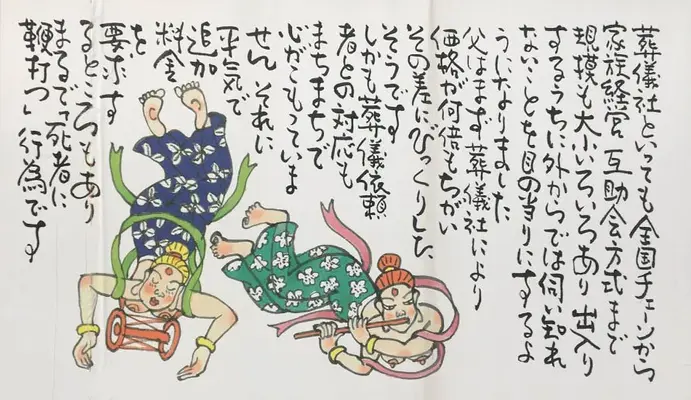 葬儀社といっても全国チェーンから
家族経営互助会方式まで
規模も大小いろいろあり出入り
するうちに外からでは伺い知れ
ないことを目の当りにするよ
うになりました
父はまず葬儀社により
価格が何倍もちがい
その差にびっくりした
そうです
しかも葬儀依頼
者との対応も
まちまちで
心がこもっていま
せんそれに
平気で
追加
料金
を
要求す
るところもあり
まるで「死者に
鞭打つ」行為です